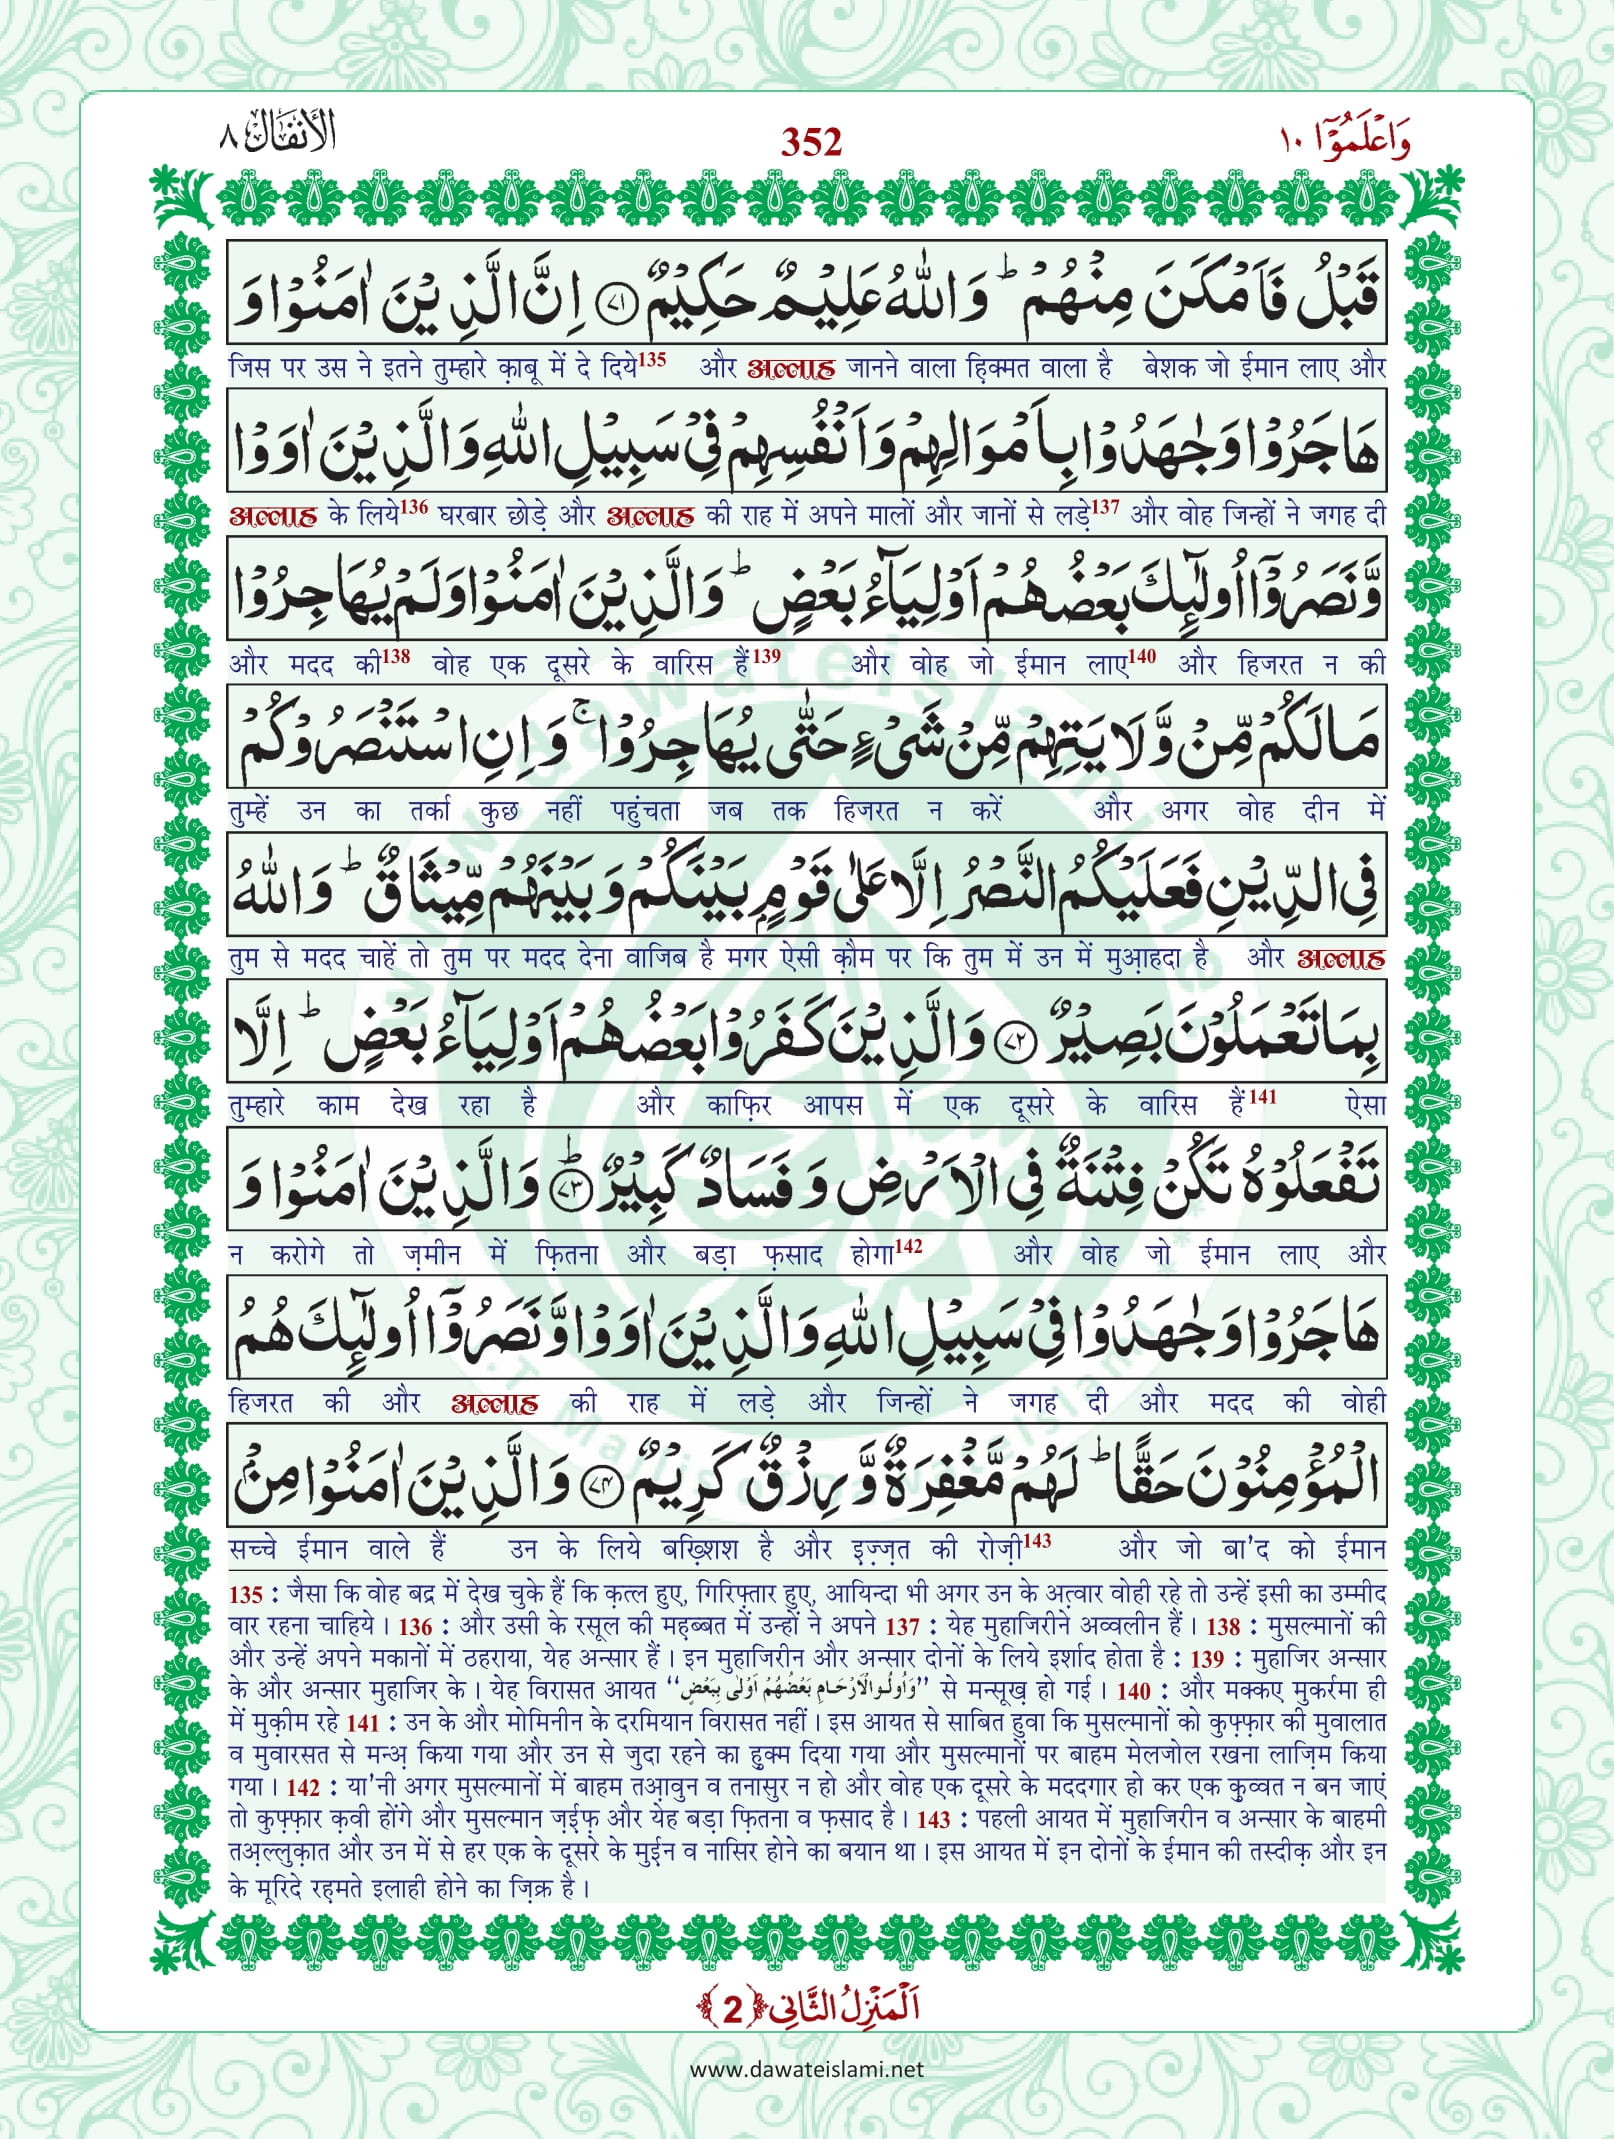 وَاعْلَمُوْٓا ١٠
352
الأنفال ٨
قَبْلُ فَاَمْكَنَ مِنْهُمْ ؕ وَاللّٰهُ عَلِيْمٌ حَكِيْمٌ ﴿۷۱﴾ اِنَّ الَّذِيْنَ اٰمَنُوْا وَ
जिस पर उस ने इतने तुम्हारे क़ाबू में दे दिये135 और अल्लाह जानने वाला ह़िक्मत वाला है बेशक जो ईमान लाए और
هَاجَرُوْا وَجٰهَدُوْا بِاَمْوَالِهِمْ وَاَنْفُسِهِمْ فِيْ سَبِيْلِ اللّٰهِ وَالَّذِيْنَ اٰوَوْا
अल्लाह के लिये136 घरबार छोड़े और अल्लाह की राह में अपने मालों और जानों से लड़े137 और वोह जिन्हों ने जगह दी
وَّنَصَرُوْٓا اُولٰٓئِكَ بَعْضُهُمْ اَوْلِيَآءُ بَعْضٍ ؕ وَالَّذِيْنَ اٰمَنُوْا وَلَمْ يُهَاجِرُوْا
और मदद की138 वोह एक दूसरे के वारिस हैं139 और वोह जो ईमान लाए140 और हिजरत न की
مَا لَكُمْ مِّنْ وَّلَايَتِهِمْ مِّنْ شَيْءٍ حَتّٰى يُهَاجِرُوْا ۚ وَاِنِ اسْتَنْصَرُوْكُمْ
तुम्हें उन का तर्का कुछ नहीं पहुंचता जब तक हिजरत न करें और अगर वोह दीन में
فِي الدِّيْنِ فَعَلَيْكُمُ النَّصْرُ اِلَّا عَلٰى قَوْمٍۭ بَيْنَكُمْ وَبَيْنَهُمْ مِّيْثَاقٌ ؕ وَاللّٰهُ
तुम से मदद चाहें तो तुम पर मदद देना वाजिब है मगर ऐसी क़ौम पर कि तुम में उन में मुआ़हदा है और अल्लाह
بِمَا تَعْمَلُوْنَ بَصِيْرٌ ﴿۷۲﴾ وَالَّذِيْنَ كَفَرُوْا بَعْضُهُمْ اَوْلِيَآءُ بَعْضٍ ؕ اِلَّا
तुम्हारे काम देख रहा है और काफ़िर आपस में एक दूसरे के वारिस हैं141 ऐसा
تَفْعَلُوْهُ تَكُنْ فِتْنَةٌ فِي الْاَرْضِ وَ فَسَادٌ كَبِيْرٌ ﴿۷۳﴾ؕ وَالَّذِيْنَ اٰمَنُوْا وَ
न करोगे तो ज़मीन में फ़ितना और बड़ा फ़साद होगा142 और वोह जो ईमान लाए और
هَاجَرُوْا وَجٰهَدُوْا فِيْ سَبِيْلِ اللّٰهِ وَالَّذِيْنَ اٰوَوْا وَّنَصَرُوْٓا اُولٰٓئِكَ هُمُ
हिजरत की और अल्लाह की राह में लड़े और जिन्हों ने जगह दी और मदद की वोही
الْمُؤْمِنُوْنَ حَقًّا ؕ لَهُمْ مَّغْفِرَةٌ وَّرِزْقٌ كَرِيْمٌ ﴿۷۴﴾ وَالَّذِيْنَ اٰمَنُوْا مِنْۢ
सच्चे ईमान वाले हैं उन के लिये बख़्शिश है और इ़ज़्ज़त की रोज़ी143 और जो बा'द को ईमान
135 : जैसा कि वोह बद्र में देख चुके हैं कि क़त्ल हुए, गिरिफ़्तार हुए, आयिन्दा भी अगर उन के अत़्वार वोही रहे तो उन्हें इसी का उम्मीद
वार रहना चाहिये । 136 : और उसी के रसूल की मह़ब्बत में उन्हों ने अपने 137 : येह मुहाजिरीने अव्वलीन हैं । 138 : मुसल्मानों की
और उन्हें अपने मकानों में ठहराया, येह अन्सार हैं । इन मुहाजिरीन और अन्सार दोनों के लिये इर्शाद होता है : 139 : मुहाजिर अन्सार
के और अन्सार मुहाजिर के । येह विरासत आयत “وَاُولُوا الْاَرْحَامِ بَعْضُهُمْ اَوْلٰى بِبَعْضٍ” से मन्सूख़ हो गई । 140 : और मक्कए मुकर्रमा ही
में मुक़ीम रहे 141 : उन के और मोमिनीन के दरमियान विरासत नहीं । इस आयत से साबित हुवा कि मुसल्मानों को कुफ़्फ़ार की मुवालात
व मुवारसत से मन्अ़ किया गया और उन से जुदा रहने का हुक्म दिया गया और मुसल्मानों पर बाहम मेलजोल रखना लाज़िम किया
गया । 142 : या'नी अगर मुसल्मानों में बाहम तआ़वुन व तनासुर न हो और वोह एक दूसरे के मददगार हो कर एक क़ुव्वत न बन जाएं
तो कुफ़्फ़ार क़वी होंगे और मुसल्मान ज़ई़फ़ और येह बड़ा फ़ितना व फ़साद है । 143 : पहली आयत में मुहाजिरीन व अन्सार के बाहमी
तअ़ल्लुक़ात और उन में से हर एक के दूसरे के मुई़न व नासिर होने का बयान था । इस आयत में इन दोनों के ईमान की तस्दीक़ और इन
के मूरिदे रह़मते इलाही होने का ज़िक्र है ।
اَلْمَنْزِلُ الثَّانِي ﴿2﴾
www.dawateislami.net